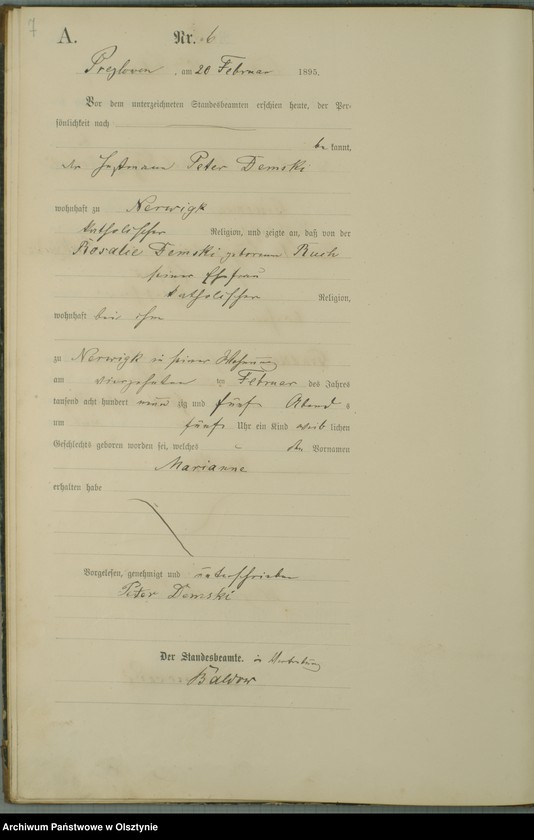 7
A. Nr. 6
Preylowen, am 20 Februar 1895.
Vor dem unterzeichneten Standesbeamten erschien heute, der Per-
sönlichkeit nach
be kannt,
der Peter Demski
wohnhaft zu Nerwigk
katholischer Religion, und zeigte an, daß von der
Rosalie Demski geborenen
seiner Ehefrau
katholischer Religion,
wohnhaft bei ihm
zu Nerwigk in seiner Wohnung
am vierzehnten ten Februar des Jahres
tausend acht hundert neun zig und fünf Abend s
um fünf Uhr ein Kind weib lichen
Geschlechts geboren worden sei, welches den Vornamen
Marianne
erhalten habe
Vorgelesen, genehmigt und unterschrieben
Peter Demski
Der Standesbeamte. in Vertretung
Archiwum Państwowe w Olsztynie